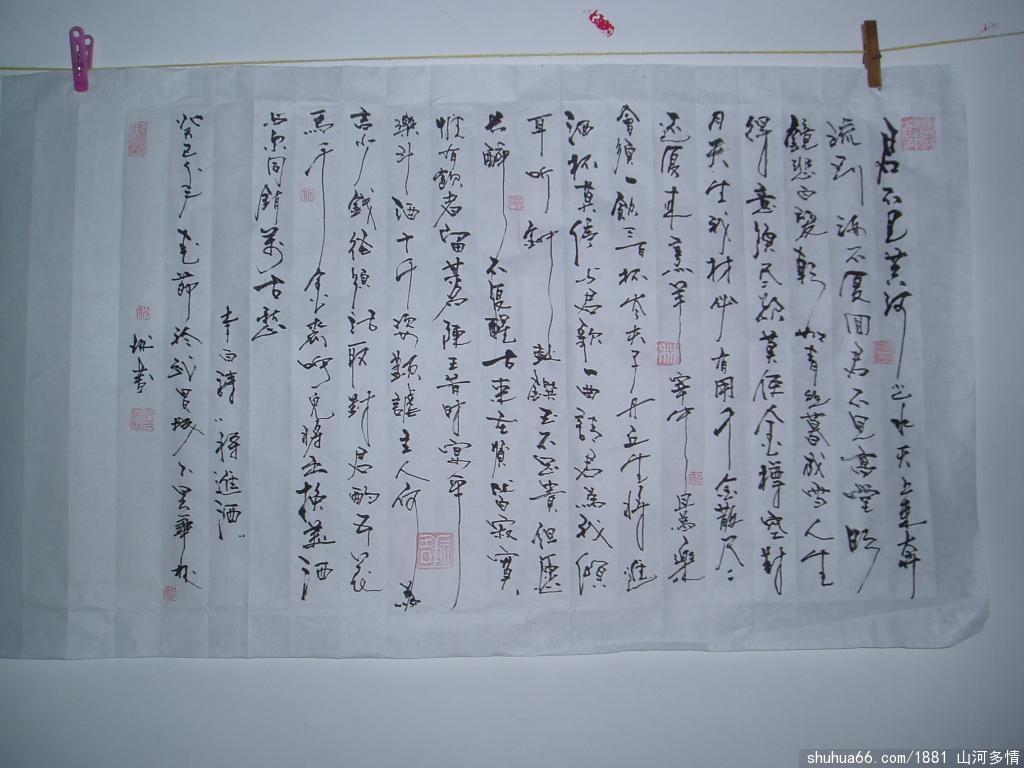 君不见黄河之水天上来奔
流到海不復回君不見高堂明
鏡悲白髮朝如青絲暮成雪人生
得意須尽歡莫使金樽空對
月天生我材必有用千金散尽
还復来烹羊宰牛且為樂
會須一飲三百杯岑夫子丹丘生將進
酒杯莫停与君歌一曲請君為我傾
耳听鐘鼓饌玉不足貴但願
长醉不復醒古来圣賢皆寂寞
惟有飲者留其名陳王昔时宴平
樂斗酒十千恣歡謔主人何為
言少錢徑須沽取對君酌五花
馬千金裘呼儿將出換美酒
与尔同銷萬古愁
李白詩“將進酒”
癸巳年
書
shuhua66.com/1881 山河多情